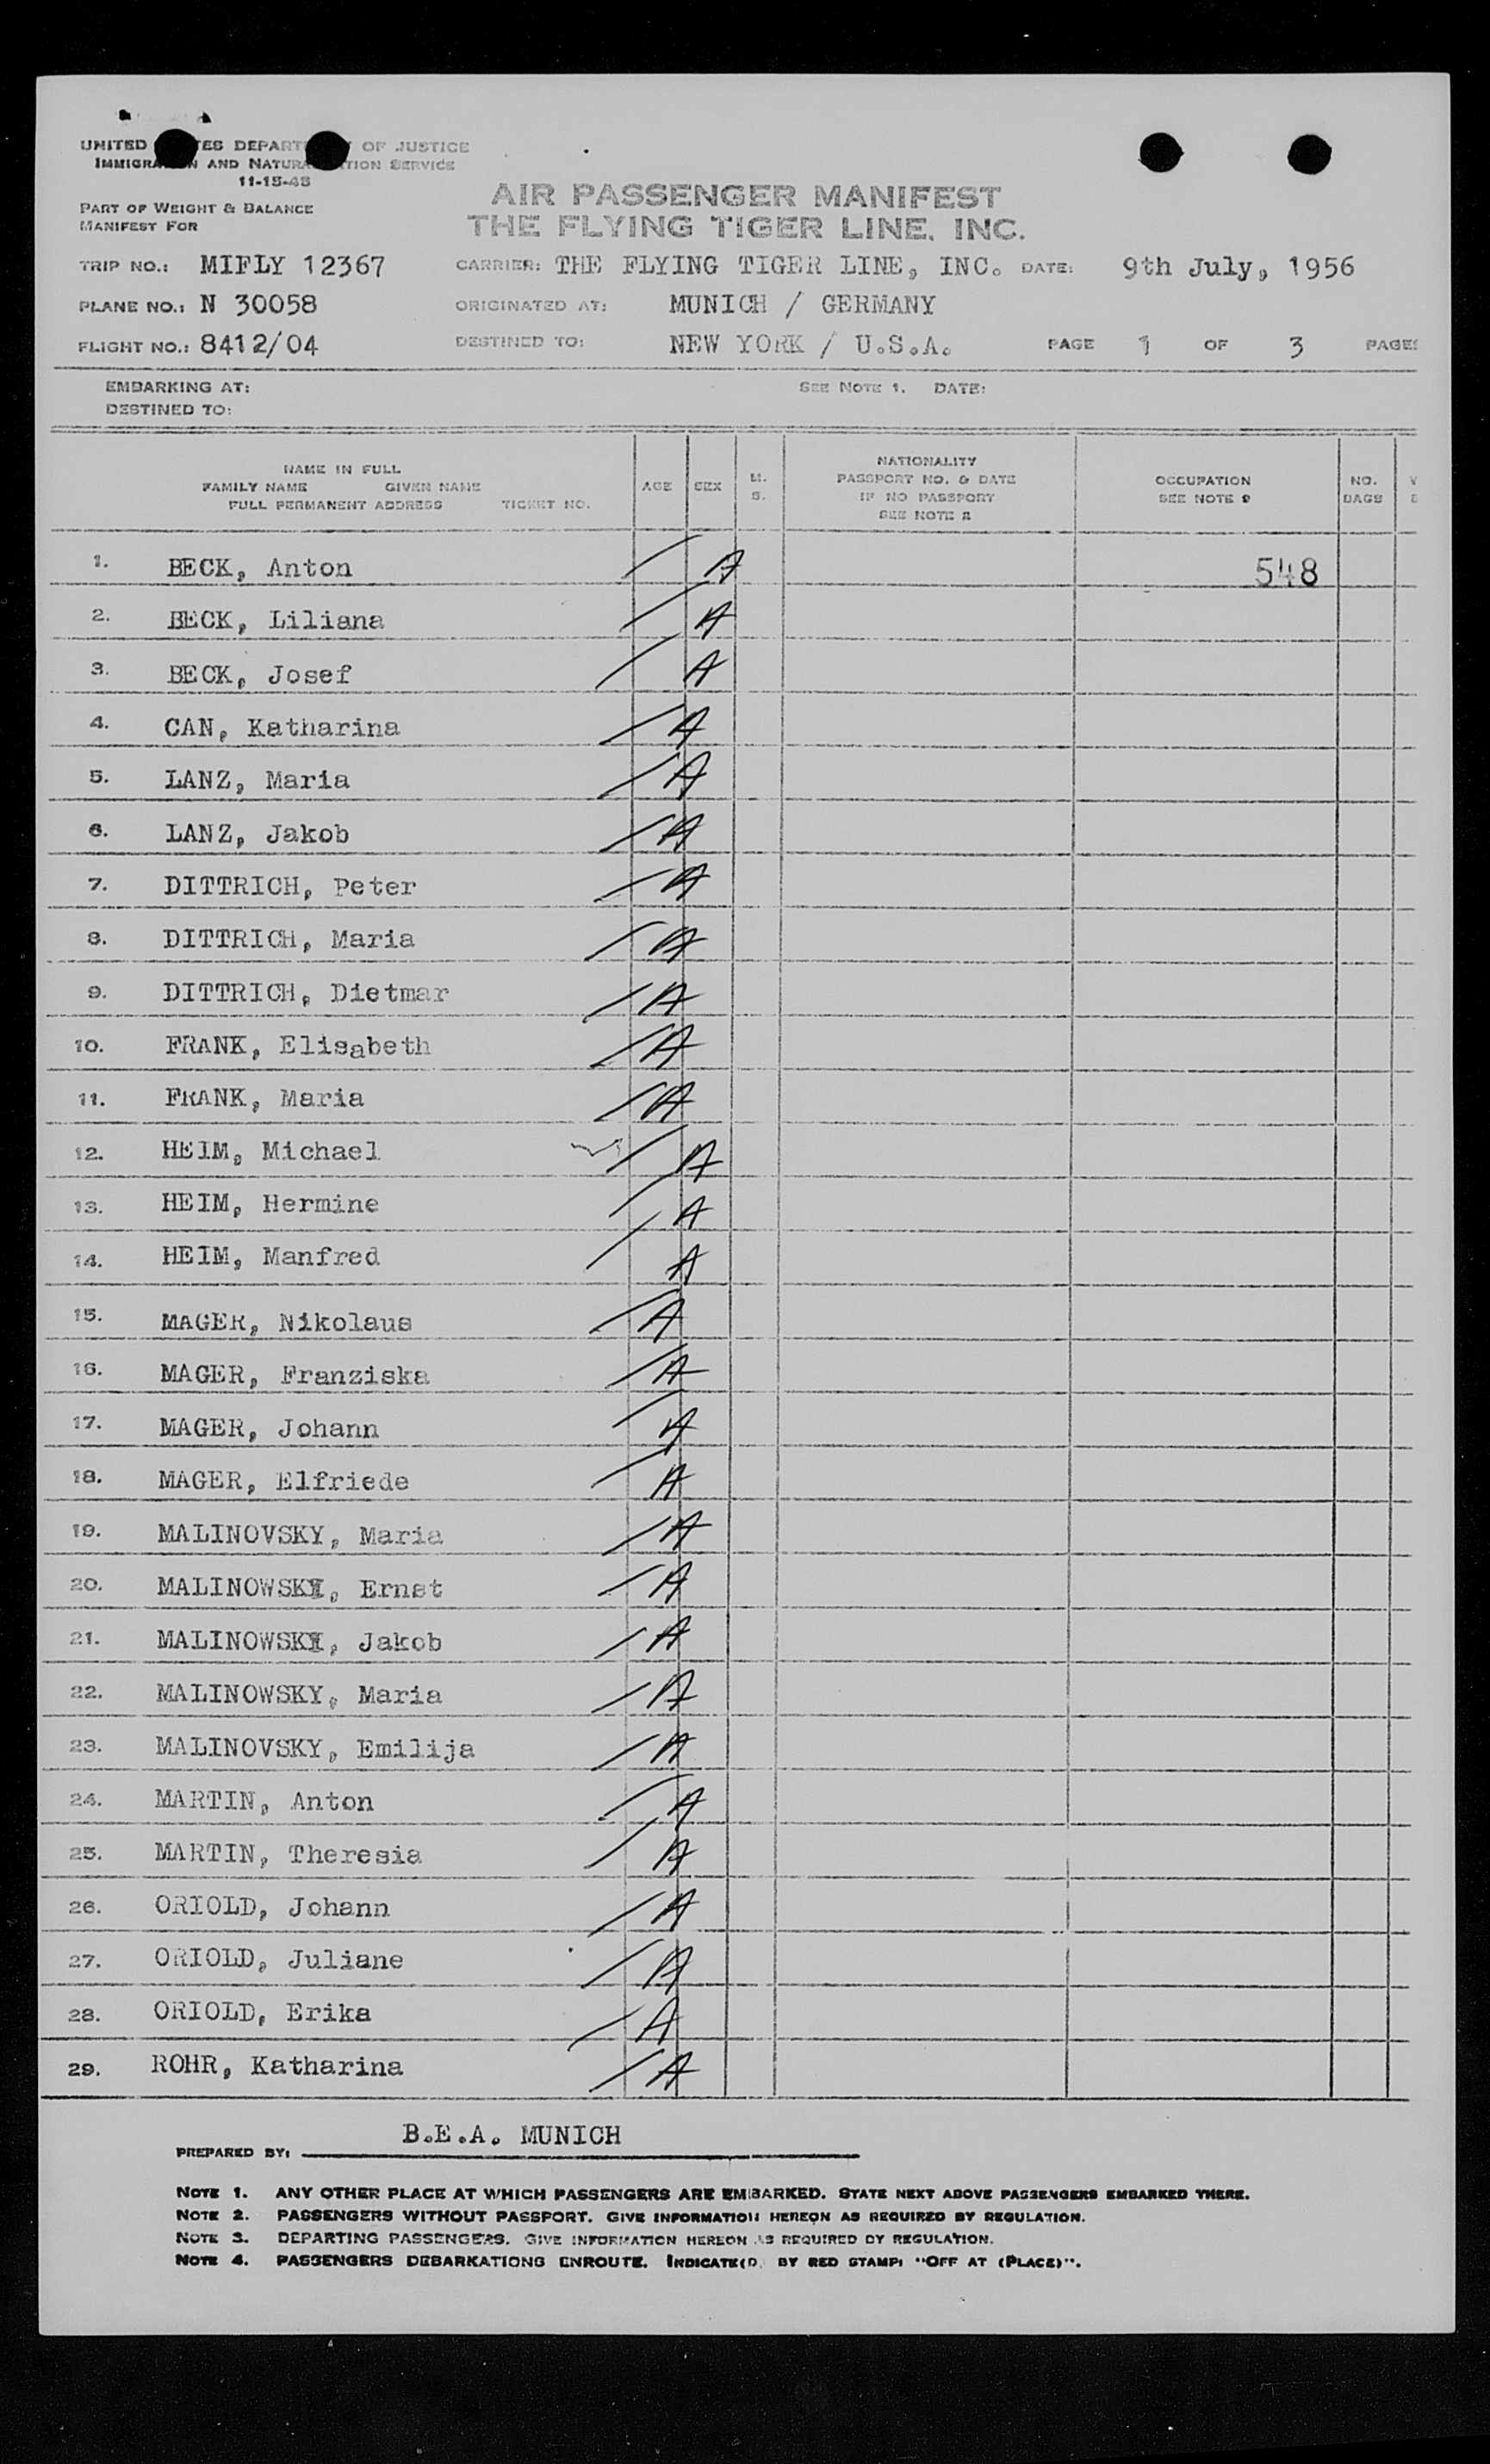 UNITED STATES DEPARTMENT OF JUSTICE
IMMIGRATION AND NATURALIZATION SERVICE
11-15-48
PART OF WEIGHT & BALANCE
MANIFEST FOR
AIR PASSENGER MANIFEST
THE FLYING TIGER LINE, INC.
TRIP NO.: MIFLY 12367 CARRIER: THE FLYING TIGER LINE, INC. DATE: 9th July, 1956
PLANE NO.: N 30058 ORIGINATED AT: MUNICH / GERMANY
FLIGHT NO.: 8412/04 DESTINED TO: NEW YORK / U.S.A. PAGE 1 OF 3 PAGES
EMBARKING AT: SEE NOTE 1. DATE:
DESTINED TO:
NAME IN FULL
FAMILY NAME GIVEN NAME
FULL PERMANENT ADDRESS TICKET NO.
AGE
SEX
M.
S.
NATIONALITY
PASSPORT NO. & DATE
IF NO PASSPORT
SEE NOTE 2
OCCUPATION
SEE NOTE 2
NO.
BAGS
1. BECK, Anton / A 548
2. BECK, Liliana / A
3. BECK, Josef / A
4. CAN, Katharina / A
5. LANZ, Maria / A
6. LANZ, Jakob / A
7. DITTRICH, Peter / A
8. DITTRICH, Maria / A
9. DITTRICH, Dietmar / A
10. FRANK, Elisabeth / A
11. FRANK, Maria / A
12. HEIM, Michael / A
13. HEIM, Hermine / A
14. HEIM, Manfred / A
15. MAGER, Nikolaus / A
16. MAGER, Franziska / A
17. MAGER, Johann / A
18. MAGER, Elfriede / A
19. MALINOVSKY, Maria / A
20. MALINOWSKY, Ernst / A
21. MALINOWSKY, Jakob / A
22. MALINOWSKY, Maria / A
23. MALINOVSKY, Emilija / A
24. MARTIN, Anton / A
25. MARTIN, Theresia / A
26. ORIOLD, Johann / A
27. ORIOLD, Juliane / A
28. ORIOLD, Erika / A
29. ROHR, Katharina / A
PREPARED BY: B.E.A. MUNICH
NOTE 1. ANY OTHER PLACE AT WHICH PASSENGERS ARE EMBARKED. STATE NEXT ABOVE PASSENGERS EMBARKED THERE.
NOTE 2. PASSENGERS WITHOUT PASSPORT. GIVE INFORMATION HEREON AS REQUIRED BY REGULATION.
NOTE 3. DEPARTING PASSENGERS. GIVE INFORMATION HEREON AS REQUIRED BY REGULATION.
NOTE 4. PASSENGERS DEBARKATIONS ENROUTE. INDICATE(D) BY RED STAMP: "OFF AT (PLACE)".